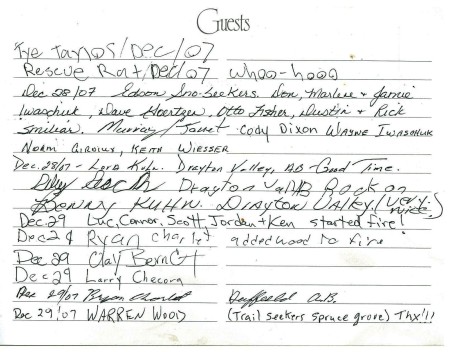 Guests
Dec/07
Rescue Rat/Dec/07 whoo-hooo
Dec 28/07 Edson Sno-Seekers. Don, Marlene & Jamie
Iwaschuk, Dave Goertzen, Otto Fisher, Dustin & Rick
Murray / Janet Cody Dixon WAYNE IWASCHUK
NORM GIROUX, KEITH WIESSER
Dec. 28/07 - Lora Kuhn. Drayton Valley, AB - Good Time.
Drayton Rock on
Benny KUHN. DRAYTON VALLEY. (VERY. NICE.)
Dec 29 Luc, Connor, Scott, Jordan + Ken started fire!
Dec 29 Ryan added wood to fire
Dec 29 Clay Berndt
Dec 29 Larry Checora
Dec 29/07 Bryan AB.
Dec 29/07 WARREN WOOD (Trail seekers spruce grove) Thx!!!